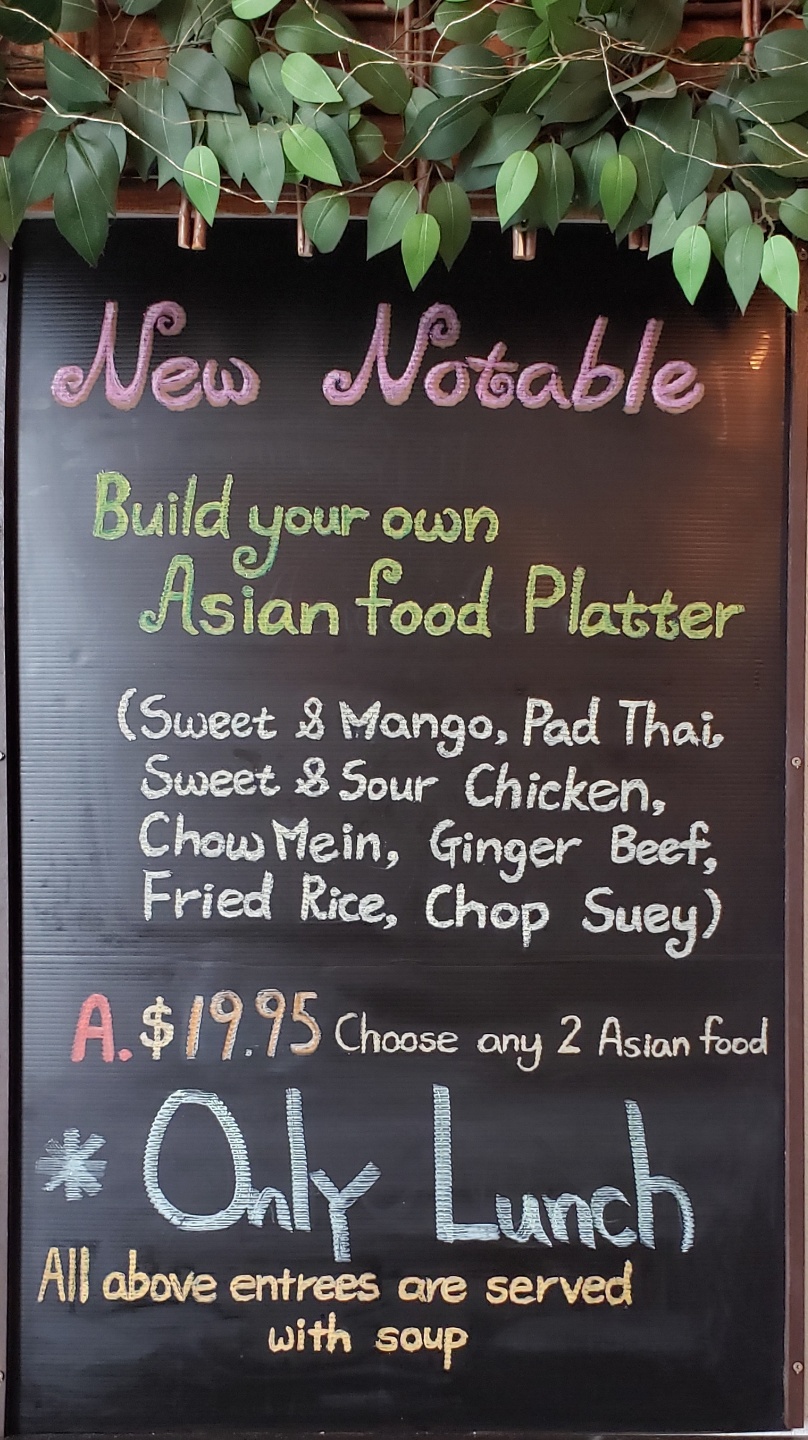 New Notable
Build your own
Asian food Platter
(Sweet & Mango, Pad Thai,
Sweet & Sour Chicken,
Chow Mein, Ginger Beef,
Fried Rice, Chop Suey)
A. $19.95 Choose any 2 Asian food
* Only Lunch
All above entrees are served
with soup